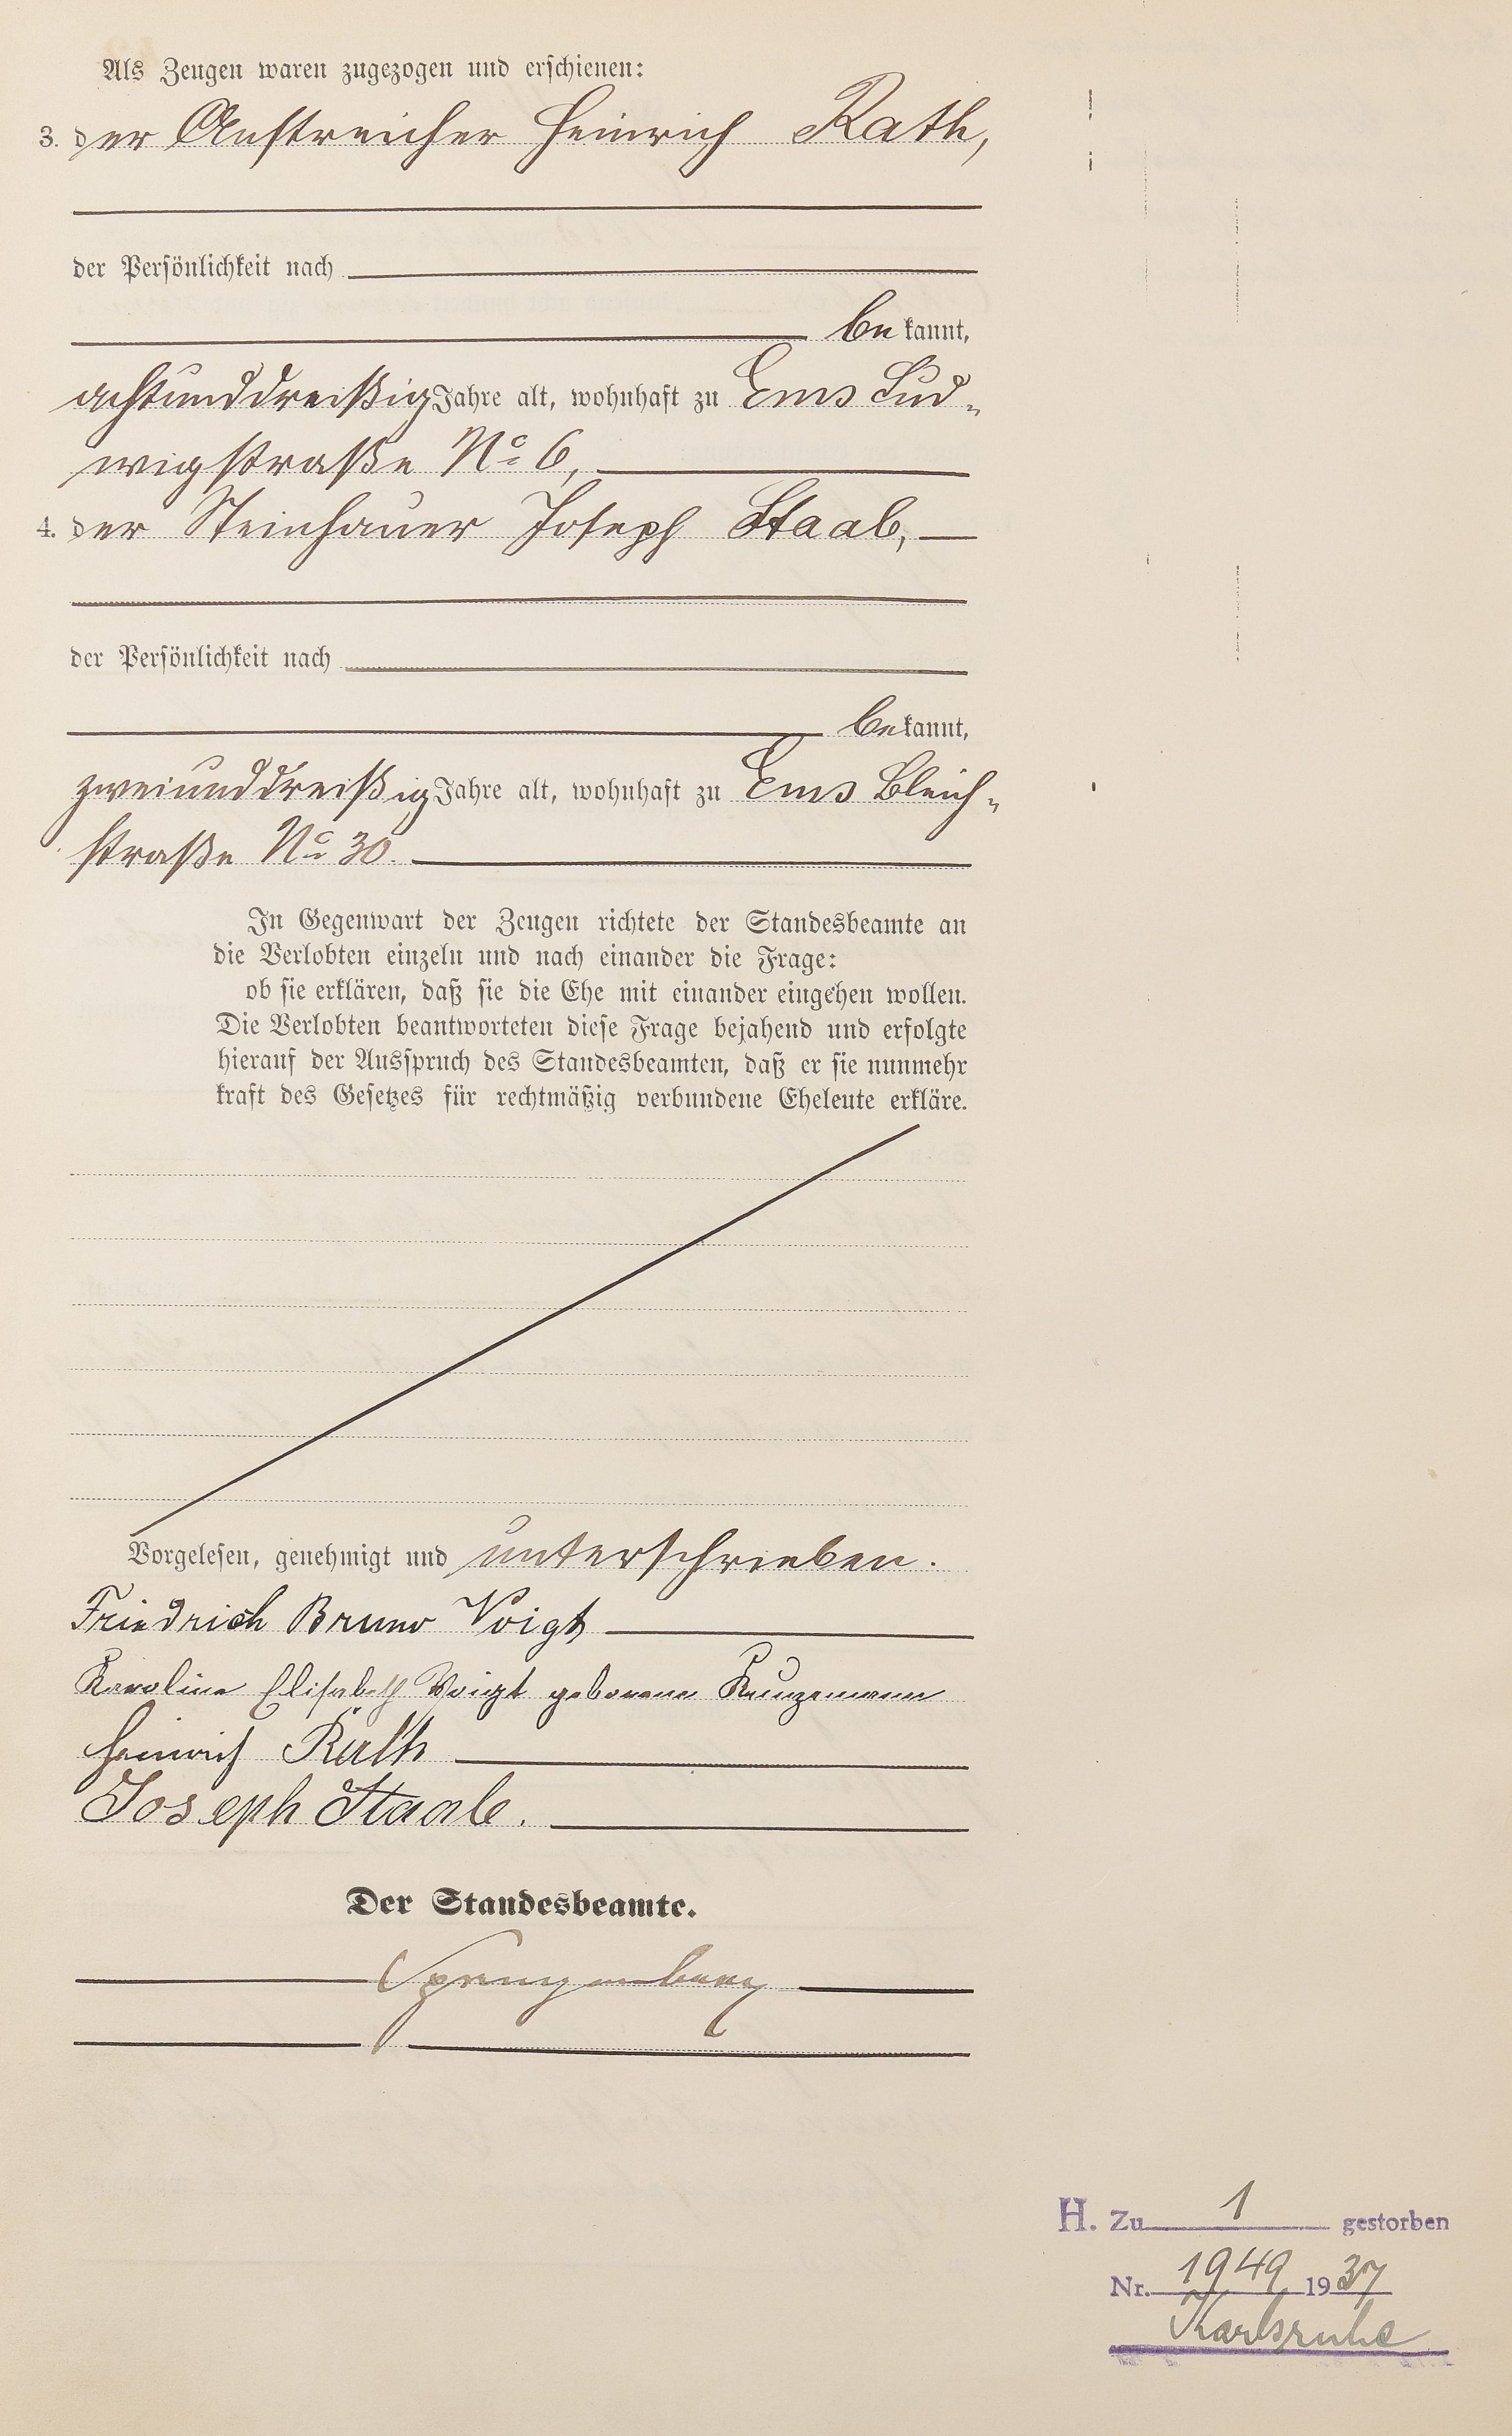 Als Zeugen waren zugezogen und erschienen:
3. der Anstreicher Heinrich Rath,
der Persönlichkeit nach
bekannt,
achtunddreißig Jahre alt, wohnhaft zu Ems Lud-
wigstraße No 6,
4. der Steinhauer Joseph Staab,
der Persönlichkeit nach
bekannt,
zweiunddreißig Jahre alt, wohnhaft zu Ems Bleich-
straße No 30.
In Gegenwart der Zeugen richtete der Standesbeamte an
die Verlobten einzeln und nach einander die Frage:
ob sie erklären, daß sie die Ehe mit einander eingehen wollen.
Die Verlobten beantworteten diese Frage bejahend und erfolgte
hierauf der Ausspruch des Standesbeamten, daß er sie nunmehr
kraft des Gesetzes für rechtmäßig verbundene Eheleute erkläre.
Vorgelesen, genehmigt und unterschrieben.
Friedrich Bruno Voigt
Karoline Elisabeth Voigt geborene
Heinrich Rath
Joseph Staab.
Der Standesbeamte.
H. Zu 1 gestorben
Nr. 1949 1937
Karlsruhe